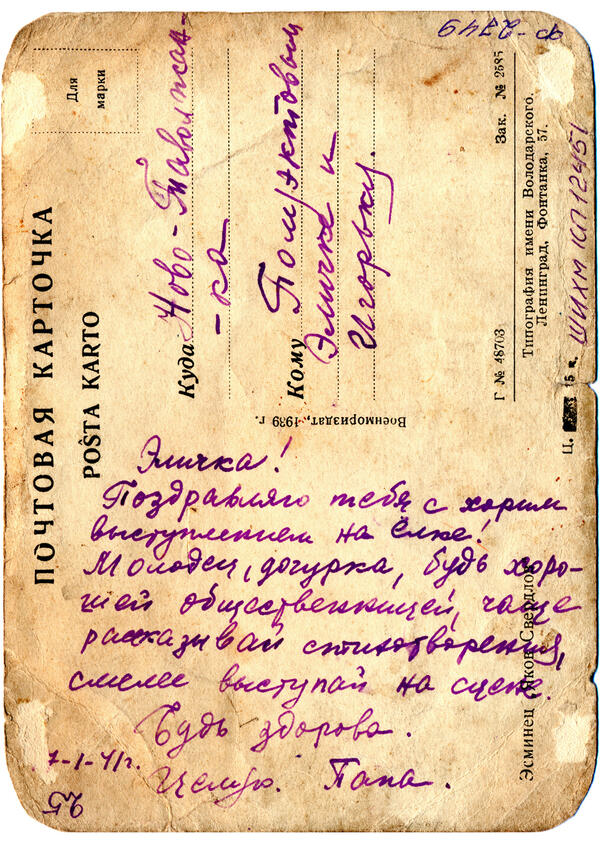 ПОЧТОВАЯ КАРТОЧКА
POŜTA KARTO
Для
марки
Куда Ново-Таволжан-
-ка
Кому Полуэктовым
Эличке и
Игорьку.
Воениориздат, 1939 г.
Г № 48703
Зак. № 2685
Типография имени Володарского.
Ленинград, Фонтанка, 57.
Ц. 15 к.
ШИХМ КП 12451
Ф-2749
Эличка!
Поздравляю тебя с хорим
выступлением на ёлке!
Молодец, дочурка, будь хоро-
шей общественницей, чаще
рассказывай стихотворения,
смелее выступай на сцене.
Будь здорова.
7-I-41г.
Целую. Папа.
Эсминец „Яков Свердлов
25